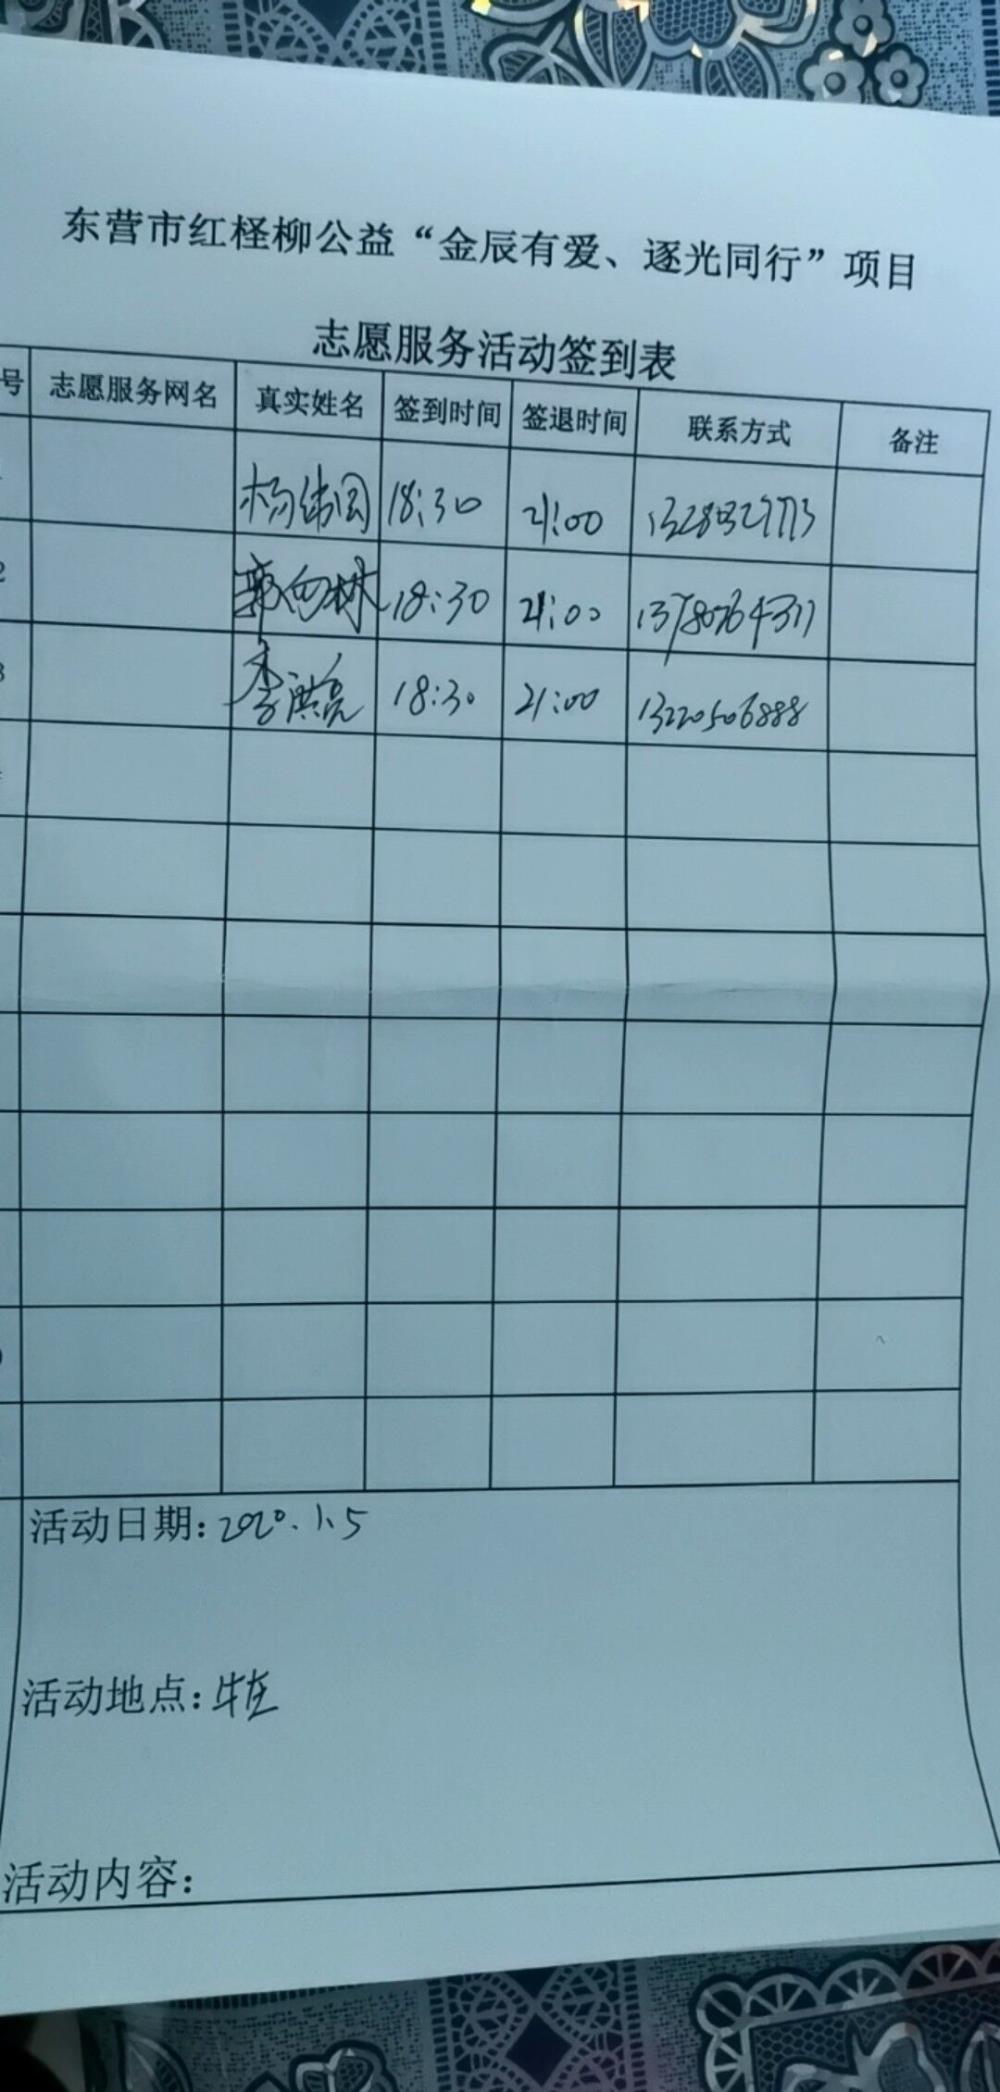 东营市红柽柳公益“金辰有爱、逐光同行”项目
志愿服务活动签到表
号 志愿服务网名 真实姓名 签到时间 签退时间 联系方式 备注
18:30 21:00
2 郭向林 18:30 21:00
3 李洪亮 18:30 21:00 13220506888
活动日期:2020.1.5
活动地点:牛庄
活动内容: